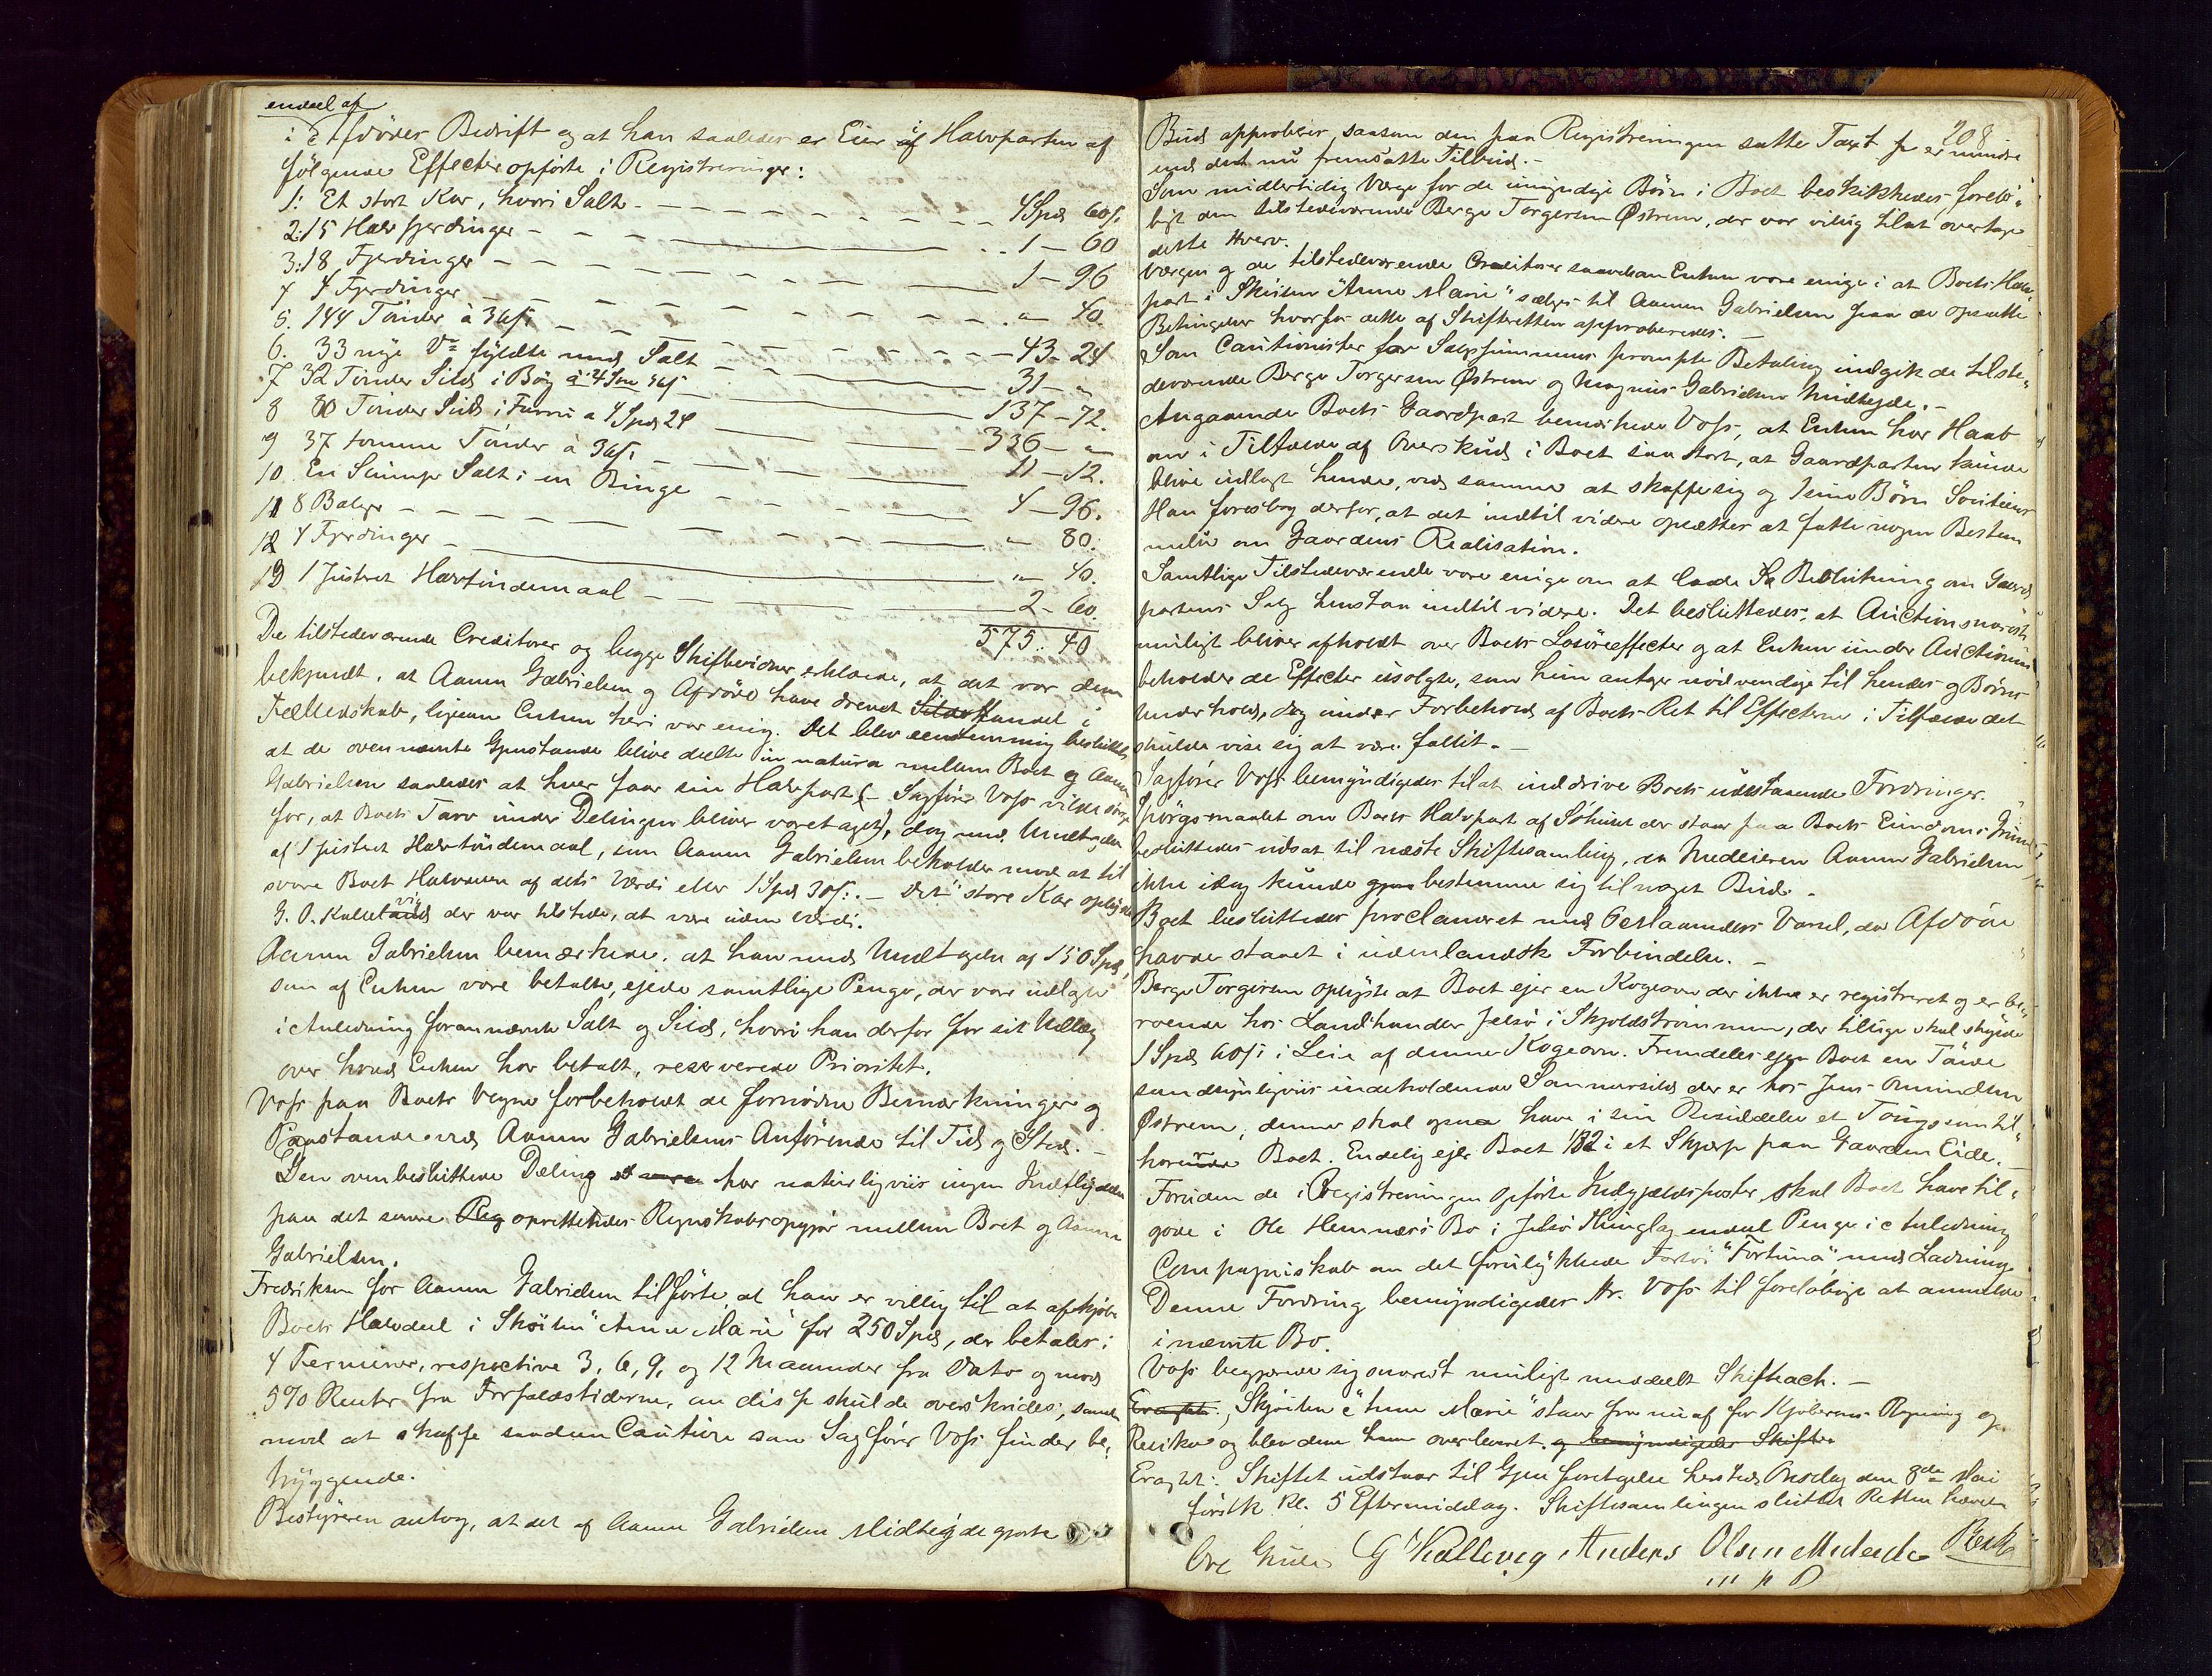 endeel af
i Afdødes Bedrift og at han saaledes er Eier af Halvparten af
følgende Effecter opførte i Registreringen:
1: Et stort Kar, hvori Salt - 4 Spd 60 s.
2: 15 Halvfjerdinger - 1 - 60
3: 18 Fjerdinger - 1 - 96
4 4 Fjerdinger - " - 40.
5. 144 Tønder à 36 s. - 43 - 24
6. 33 nye do fyldte med Salt - 31 - "
7 32 Tønder Sild i Bøg à 4 Spd 36 s - 137 - 72.
8 80 Tønder Sild i Furru a 4 Spd 24 - 336 - "
9 37 tomme Tønder à 36 s. - 11 - 12.
10. En Slump Salt i en Binge - 4 - 96.
11 8 Baljer - " - 80.
12 4 Fjerdinger - " - 40.
13 1 Justeret Halvtøndemaal - 2 - 60.
575 : 40
De tilstedeværende Creditorer og begge Skiftevidner erklærede, at det var dem
bekjendt, at Aamun Gabrielsen og Afdøde have drevet Sildehandel i
Fælledskab, ligesom Enken heri var enig. Det blev eenstemmig besluttet
at de ovennævnte Gjenstande blive deelte in natura mellem Boet og Aamun
Gabrielsen saaledes at hver faar sin Halvpart (- Sagfører Voss vilde sørge
for, at Boets Tarv under Delingen bliver varetaget), dog med Undtagelse
af 1 justeret Halvtøndemaal, som Aamun Gabrielsen beholder mod at til
svare Boet Halvdelen af dets Værdi eller 1 Spd 30 s. - Det store Kar oplyste
G. O. Kallevig der var tilstede, at være uden Værdi.
Aamun Gabrielsen bemærkede, at han med Undtagelse af 150 Spd,
som af Enken vare betalte, ejede samtlige Penge, der var udlagte
i Anledning forannævnte Salt og Sild, hvori han derfor for sit Udlæg
over hvad Enken har betalt, reserverede Prioritet.
Voss paa Boets Vegne forbeholdt de fornødne Bemærkninger og
Paastande ved Aamun Gabrielsens Anførende til Tid og Sted. -
Den ovenbesluttede Deling har naturligviis ingen Indflydelse
paa det senere oprettendes Regnskabsopgjør mellem Boet og Aamun
Gabrielsen.
Fredriksen for Aamun Gabrielsen tilførte, at han er villig til at afkjøbe
Boets Halvdeel i Skøiten "Anne Marie" for 250 Spd, der betales i
4 Terminer, respective 3, 6, 9, og 12 Maaneder fra Dato og mod
5% Renter fra Forfaldstiderne, om disse skulde overskrides, samt
mod at skaffe saadan Caution som Sagfører Voss finder be-
tryggende.
Bestyreren antog, at det af Aamun Gabrielsen Midthegde gjorte
208
Bud approberes, saasom den paa Registreringen satte Taxt er mindre
end det nu fremsatte Tilbud. -
Som midlertidig Værge for de umyndige Børn i Boet beskikkedes forelø-
bigt den tilstedeværende Berge Torgersen Østrem, der var villig til at overtage
dette Hverv.
Værgen og de tilstedeværende Creditorer saavelsom Enken vare enige i at Boets Halv-
part i Skøiten "Anne Marie" sælges til Aamun Gabrielsen paa de opsatte
Betingelser hvorfor dette af Skifteretten approberedes. -
Som Cautionister for Salgssummens prompte Betaling indgik de tilste-
deværende Berge Torgersen Østrem og Magnus Gabrielsen Midthegde. -
Angaaende Boets Gaardpart bemærkede Voss, at Enken har Haab
om i Tilfælde af Overskud i Boet saa stort, at Gaardparten kunde
blive udlagt hende, ved samme at skaffe sig og sine Børn Soutien.
Han foreslog derfor, at det indtil videre opsættes at fatte nogen Bestem
melse om Gaardens Realisation.
Samtlige Tilstedeværende vare enige om at lade Beslutning om Gaard
partens Salg henstaa indtil videre. Det besluttedes, at Auction snarest
muligt bliver afholdt over Boets Løsøreeffecter og at Enken under Auctionen
beholder de Effecter usolgte, som hun antager nødvendige til hendes og Børns
Underhold, dog under Forbehold af Boets Ret til Effecterne i Tilfælde det
skulde vise sig at være fallit. -
Sagfører Voss bemyndigedes til at inddrive Boets udestaaende Fordringer.
Spørgsmaalet om Boets Halvpart af Søhuset der staar paa Boets Eiendoms Grund
besluttedes udsat til næste Skiftesamling, da Medeieren Aamun Gabrielsen
ikke idag kunde bestemme sig til noget Bud. -
Boet besluttedes proclameret med 6 Maaneders Varsel, da Afdøde
havde staaet i udenlandsk Forbindelse. -
Berge Torgersen oplyste at Boet ejer en Kogeovn der ikke er registreret og er be-
roende hos Landhandler Jelsø i Skjoldstrømmen, der tillige skal skylde
1 Spd 60 s. i Leie af denne Kogeovn. Fremdeles ejer Boet en Tønde
sandsynligviis indeholdende Sommersild der er hos Jens Omundsen
Østrem, denne skal ogsaa have i sin Besiddelse et Toug som til-
hører Boet. Endelig ejer Boet 1/32 i et Skjærp paa Gaarden Eide. -
Foruden de i Registreringen opførte Indgjældsposter, skal Boet have til-
gode i Ole Hemnæs's Bo i Jelsø Thinglag endeel Penge i Anledning
Compagniskab om det forulykkede Fartøi "Fortuna" med Ladning.
Denne Fordring bemyndigedes Hr. Voss til foreløbig at anmelde
i nævnte Bo.
Voss begjærede sig snarest muligt meddeelt Skifteact. -
Eragtet: Skøiten "Anne Marie" staar fra nu af for Kjøberens Regning og
Resiko og blev dem overleveret. og bemyndigede Skifte
Eragtet: Skiftet udstaar til Gjenforetagelse hersteds Onsdag den 8de Mai
førstk. Kl. 5 Eftermiddag. Skiftesamlingen sluttet Retten hævet
G Kallevig Anders Olsen